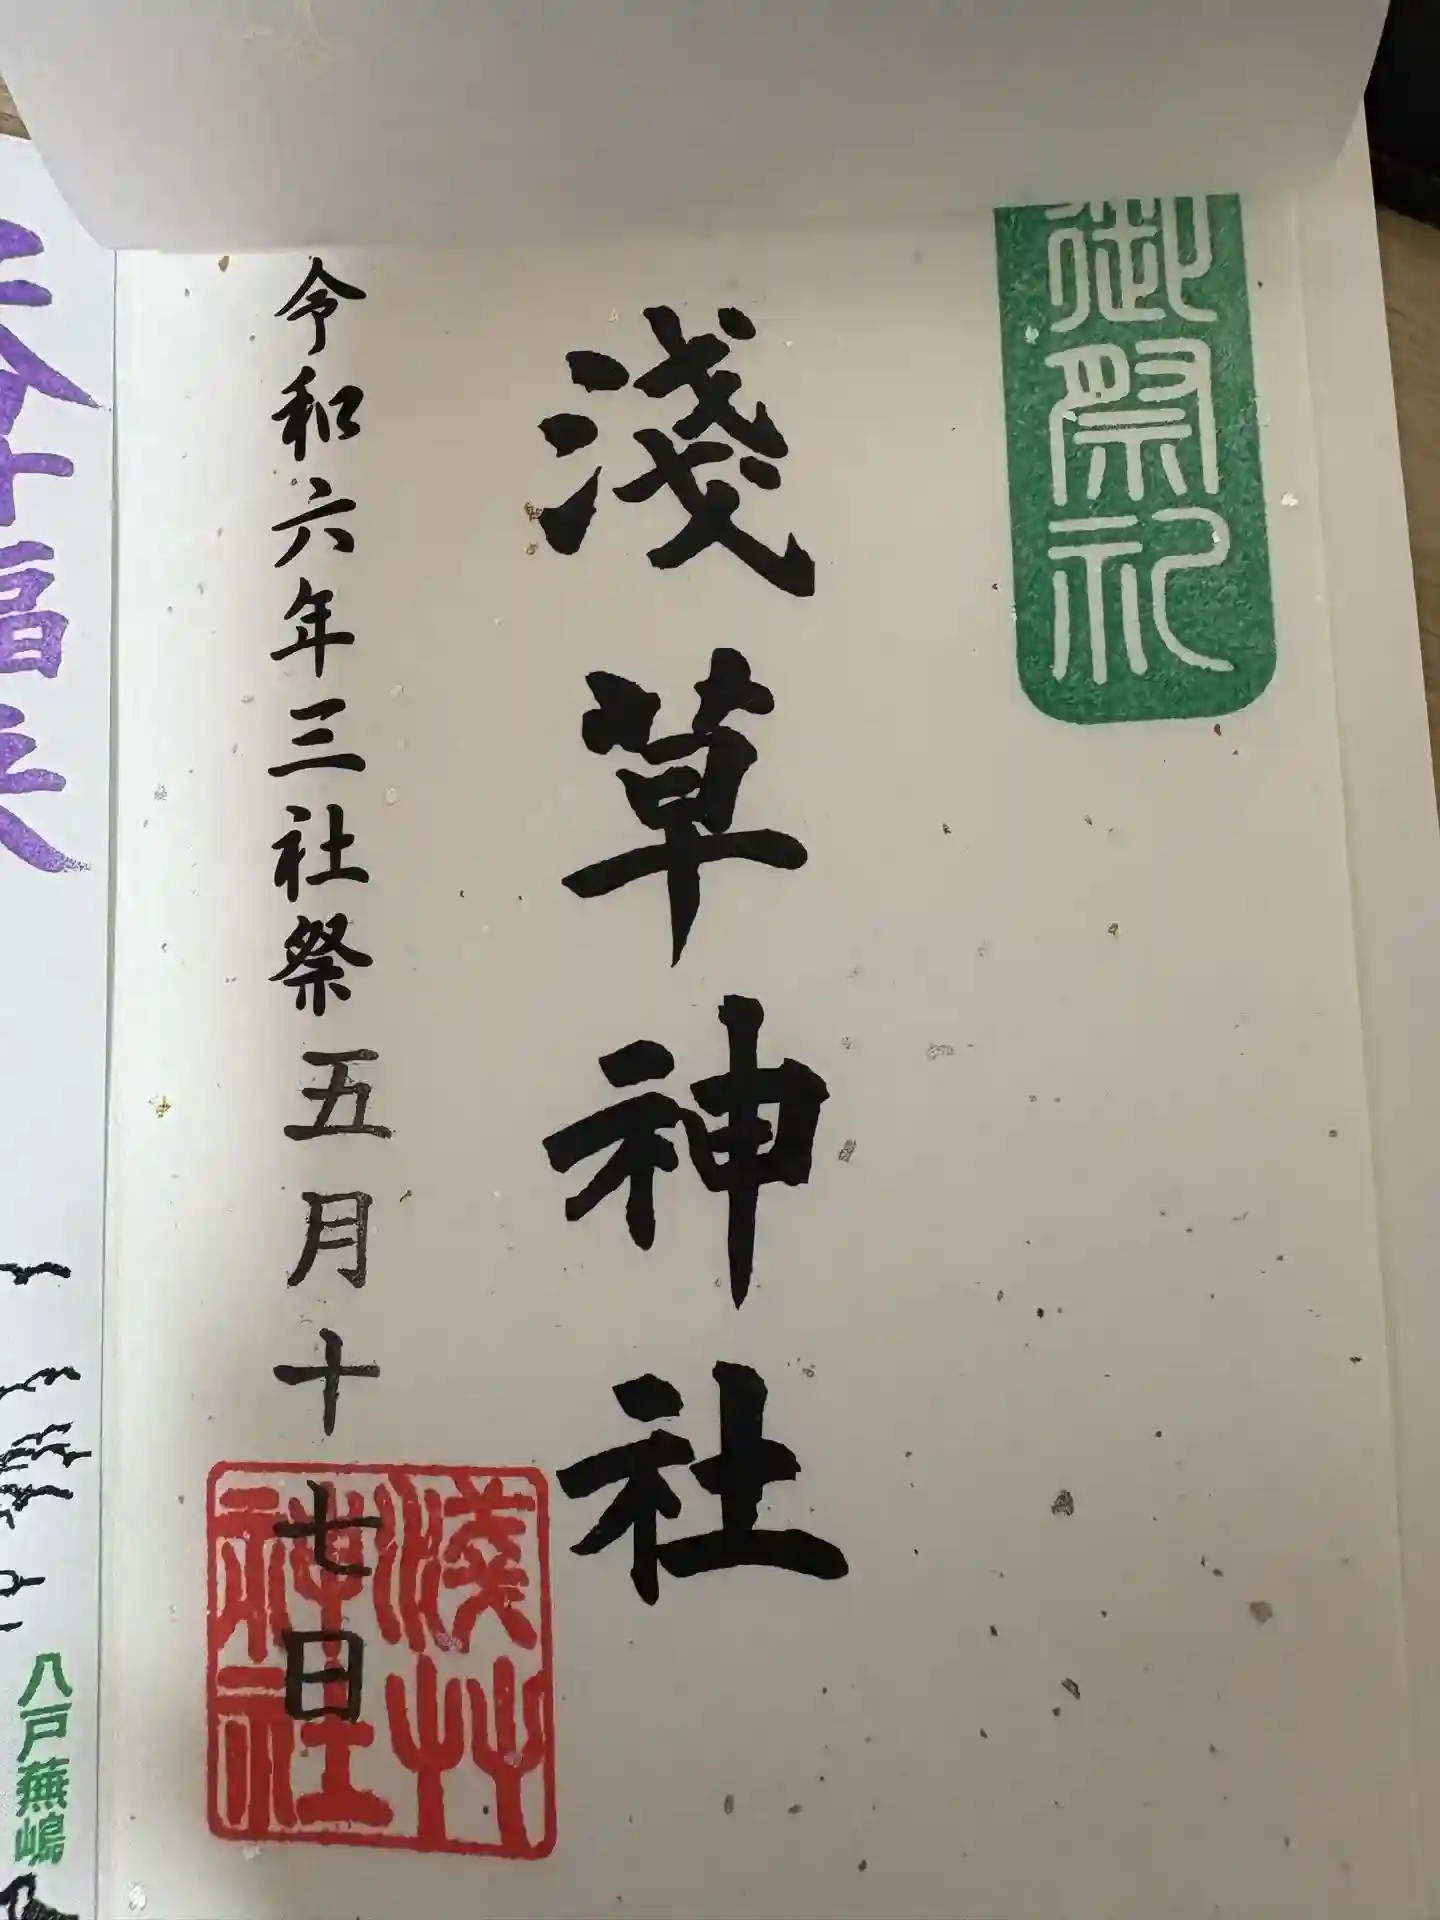 御祭礼
淺草神社
令和六年三社祭五月十七日
淺草
神社
福来
八戸蕪嶋